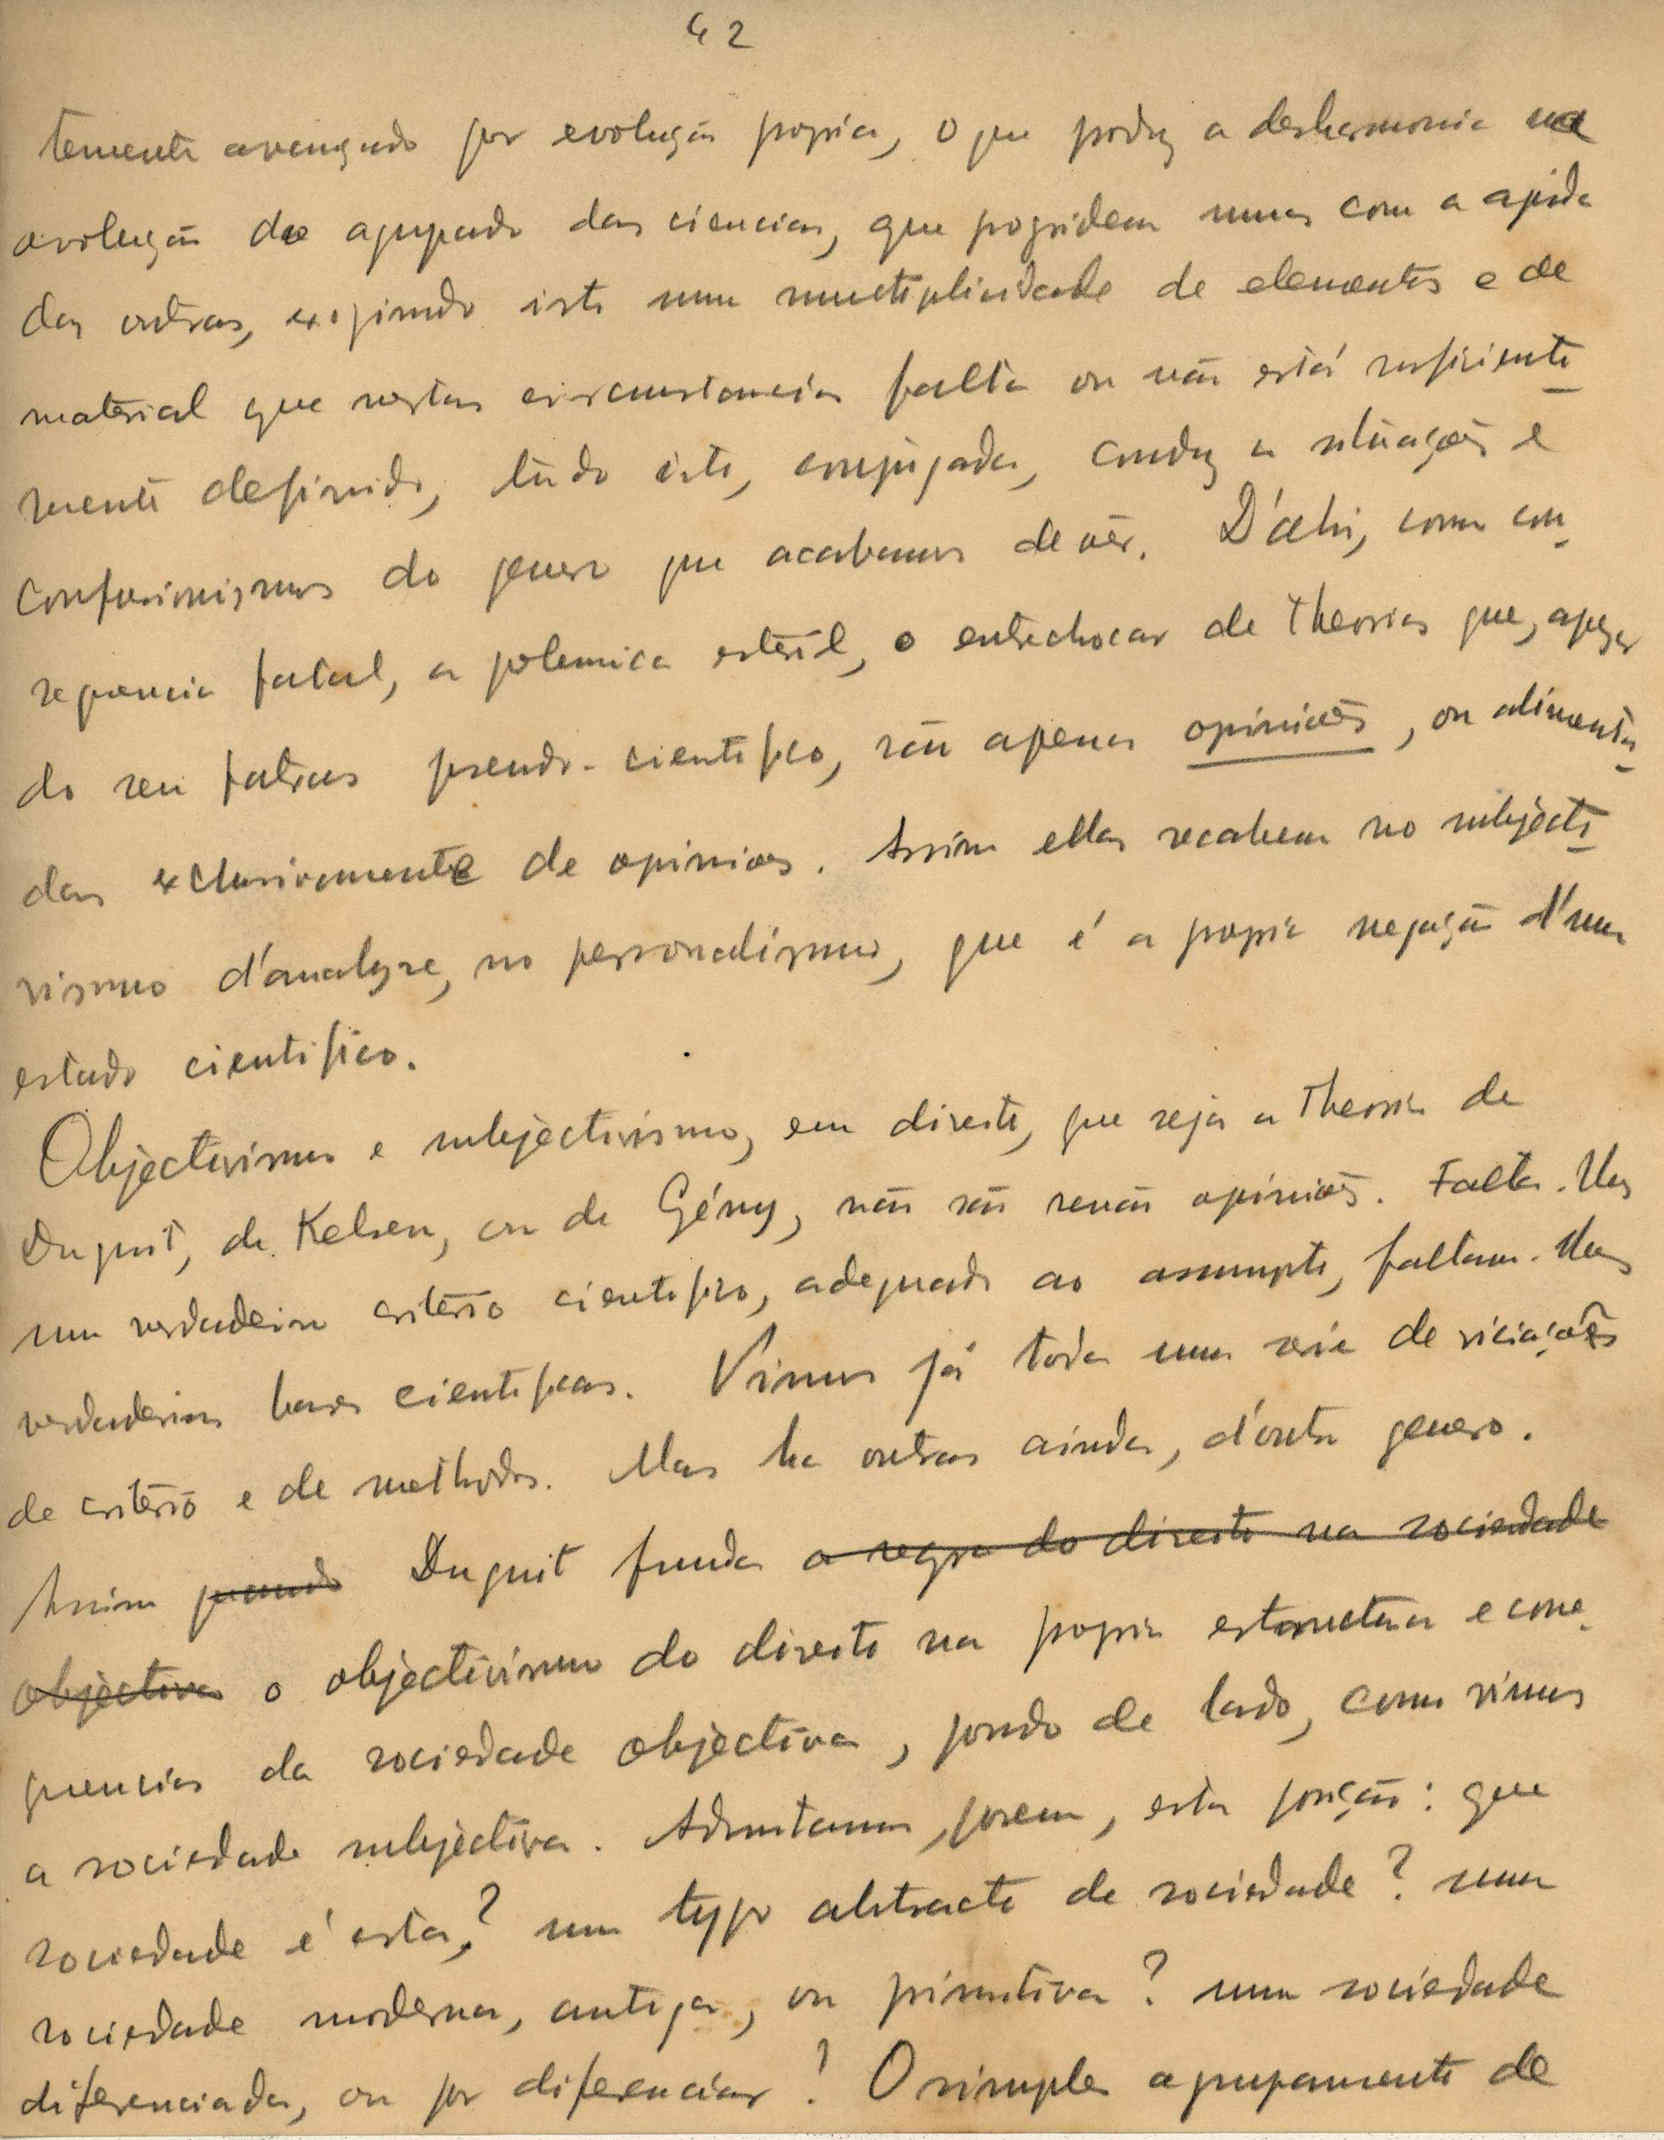 42
temente avançado por evolução propria, o que produz a desharmonia na
evolução do agrupado das ciencias, que progridem umas com a ajuda
das outras, exigindo isto uma multiplicidade de elementos e de
material que nestas circumstancias falta ou não está sufficiente-
mente definido, tudo isto, conjugado, conduz a situações e
confusionismos do genero que acabamos de vêr. D'ahi, como con-
sequencia fatal, a polemica esteril, o entrechocar de theorias que, apezar
do seu fatras pseudo-cientifico, são apenas opiniões, ou alimenta-
das exclusivamente de opiniões. Assim ellas recahem no subjecti-
vismo d'analyse, no personalismo, que é a propria negação d'um
estado cientifico.
Objectivismo e subjectivismo, em direito, quer seja a theoria de
Duguit, de Kelsen, ou de Gény, não são senão opiniões. Falta-lhes
um verdadeiro critério cientifico, adequado ao assumpto, faltam-lhes
verdadeiras bases cientificas. Vimos já toda uma serie de viciações
de critério e de methodos. Mas ha outras ainda, d'outro genero.
Assim quando Duguit funda a regra do direito na sociedade
objectiva o objectivismo do direito na propria estructura e conse-
quencias da sociedade objectiva, pondo de lado, como vimos
a sociedade subjectiva. Admitamos, porem, esta posição: que
sociedade é esta? um typo abstracto de sociedade? uma
sociedade moderna, antiga, ou primitiva? uma sociedade
diferenciada, ou por diferenciar? O simples agrupamento de